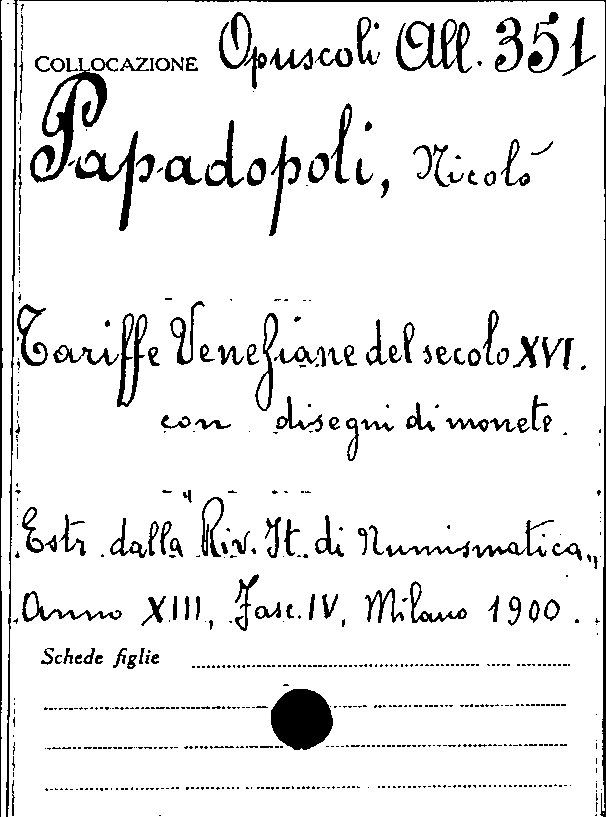 COLLOCAZIONE Opuscoli All. 351
Papadopoli, Nicolò
Tariffe Veneziane del secolo XVI.
con disegni di monete.
Estr. dalla "Riv. It. di Numismatica„
Anno XIII, Fasc. IV, Milano 1900.
Schede figlie